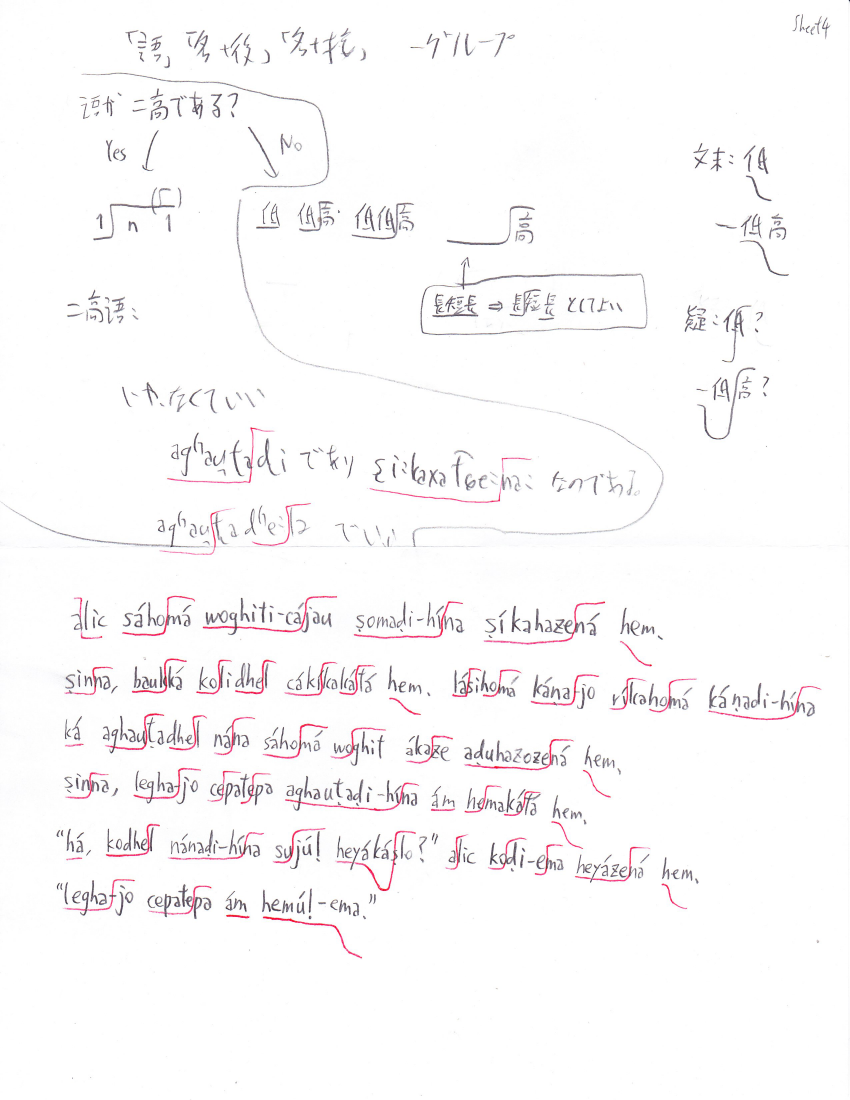 Sheet4
「語」「名+後」「名+抗」 一グループ
頭が二高である?
Yes No
1 n 1
低 低高 低低高 高
文末: 低
一低高
長短長 ⇒ 長短長 としてよい
二高語:
疑: 低?
一低高?
いれなくていい
aghauṭadi であり なのである。
aghauṭadhela でいい
alic sáhomá woghiti-cájau ṣomaḍi-hína ṣíkahazená hem.
ṣinna, baukká kolidhel cákikakátá hem. lásihomá kánafjo ríkahomá kánadi-hína
ká aghauṭadhel nána sáhomá woghit ákaze aduhazozená hem.
ṣinna, leghafjo cepatepa aghauṭaḍi-hína ám hemakátá hem.
"há, kodhel nánaḍi-hína sujú! heyákáṣlo?" alic koḍi-ema heyázená hem.
"leghafjo cepatepa ám hemú!-ema."